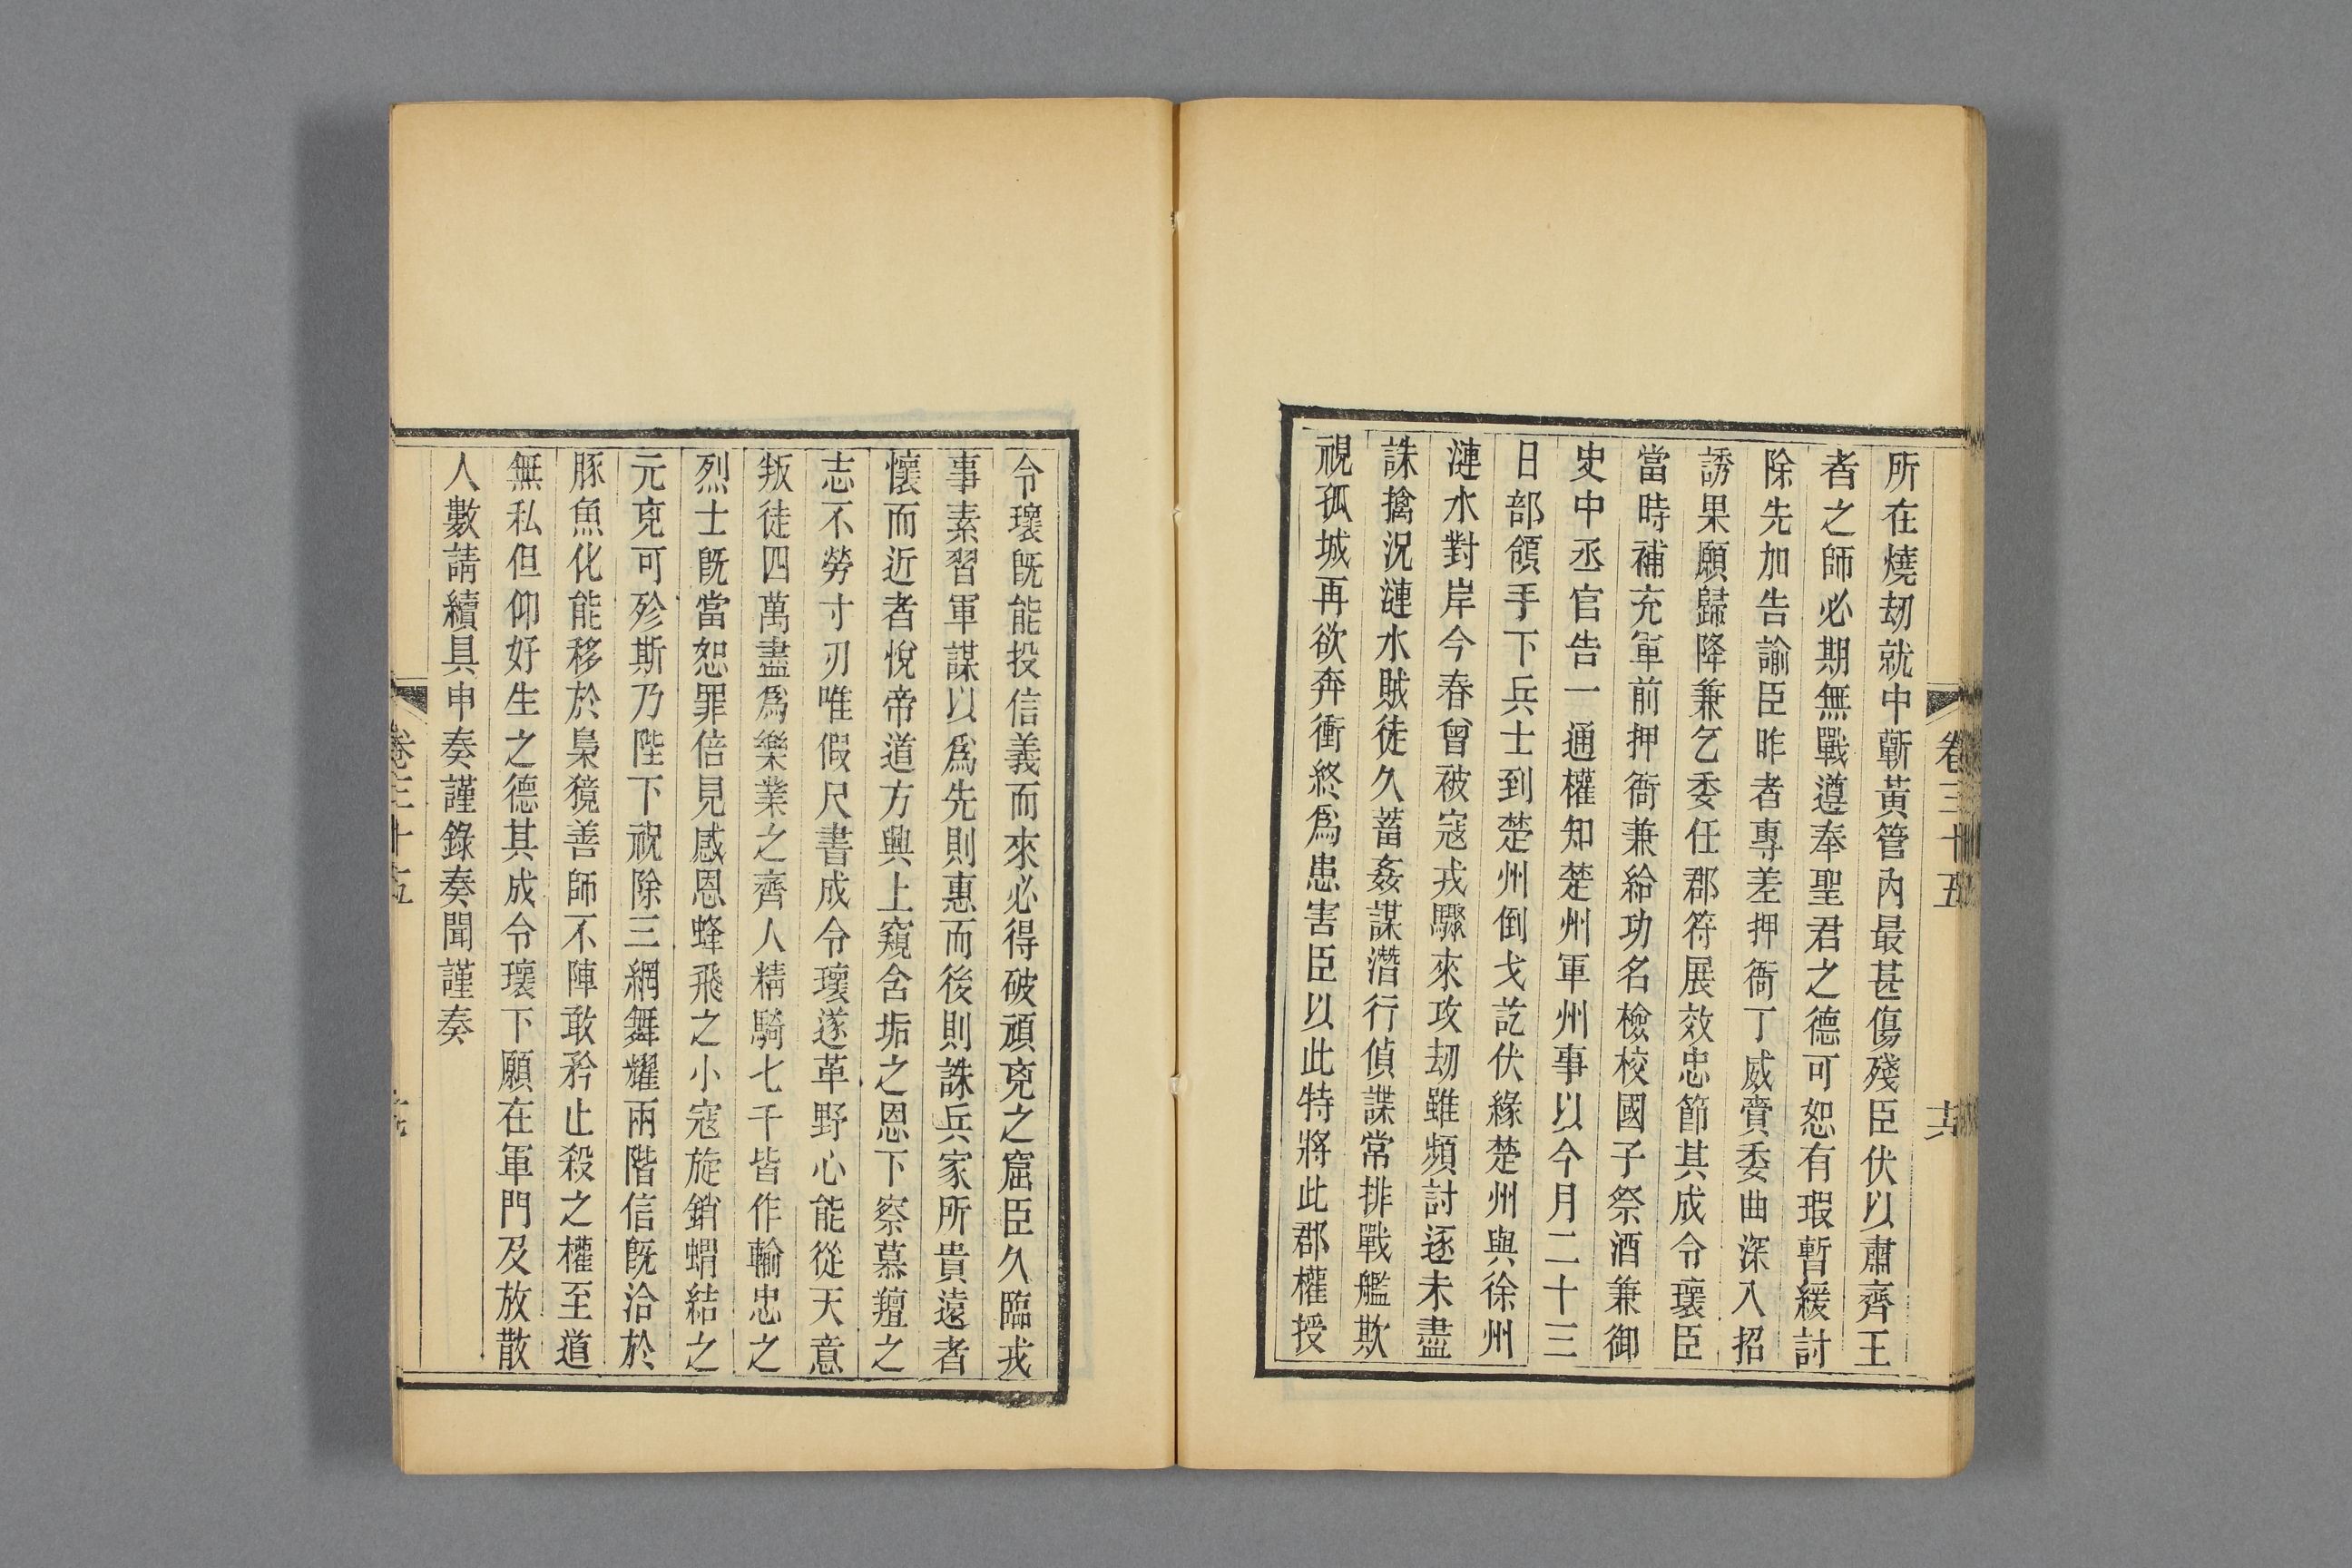 卷三十五
所在燒劫就中蘄黃管內最甚傷殘臣伏以肅齊王
者之師必期無戰遵奉聖君之德可恕有瑕暫緩討
除先加告諭臣昨者專差押衙丁威賫委曲深入招
誘果願歸降兼乞委任郡符展效忠節其成令瓌臣
當時補充軍前押衙兼給功名檢校國子祭酒兼御
史中丞官告一通權知楚州軍州事以今月二十三
日部領手下兵士到楚州倒戈訖伏緣楚州與徐州
漣水對岸今春曾被寇戎驟來攻劫雖頻討逐未盡
誅擒況漣水賊徒久蓄姦謀潛行偵諜常排戰艦欺
視孤城再欲奔衝終爲患害臣以此特將此郡權授
令瓌旣能投信義而來必得破頑兇之窟臣久臨戎
事素習軍謀以爲先則惠而後則誅兵家所貴遠者
懷而近者悅帝道方興上窺含垢之恩下察慕羶之
志不勞寸刃唯假尺書成令瓌遂革野心能從天意
叛徒四萬盡爲樂業之齊人精騎七千皆作輸忠之
烈士旣當恕罪倍見感恩蜂飛之小寇旋銷蝟結之
元兇可殄斯乃陛下祝除三網舞耀兩階信旣洽於
豚魚化能移於梟獍善師不陣敢矜止殺之權至道
無私但仰好生之德其成令瓌下願在軍門及放散
人數請續具申奏謹錄奏聞謹奏
卷三十五